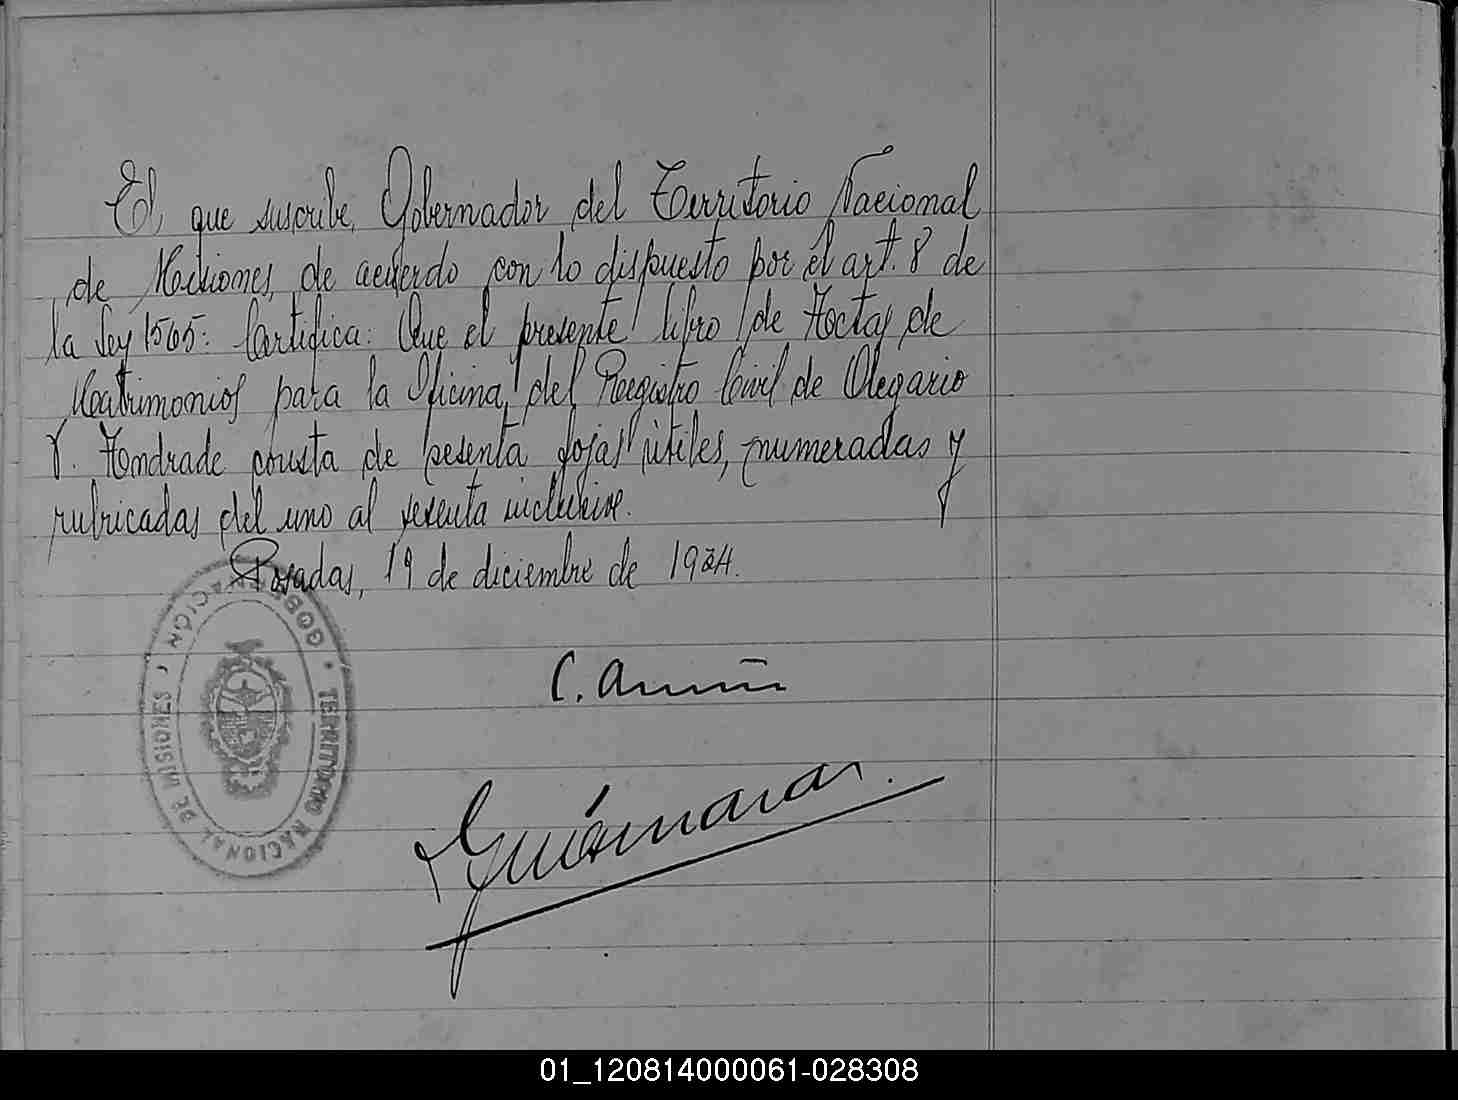 El que suscribe, Gobernador del Territorio Nacional
de Misiones, de acuerdo con lo dispuesto por el art. 8 de
la Ley 1565: Certifica: Que el presente libro de Actas de
Matrimonios para la Oficina del Registro Civil de Olegario
V. Andrade consta de sesenta fojas útiles, numeradas y
rubricadas del uno al sesenta inclusive.
Posadas, 19 de diciembre de 1934.
GOBERNACIÓN
TERRITORIO NACIONAL DE MISIONES
C. A
01_120814000061-028308